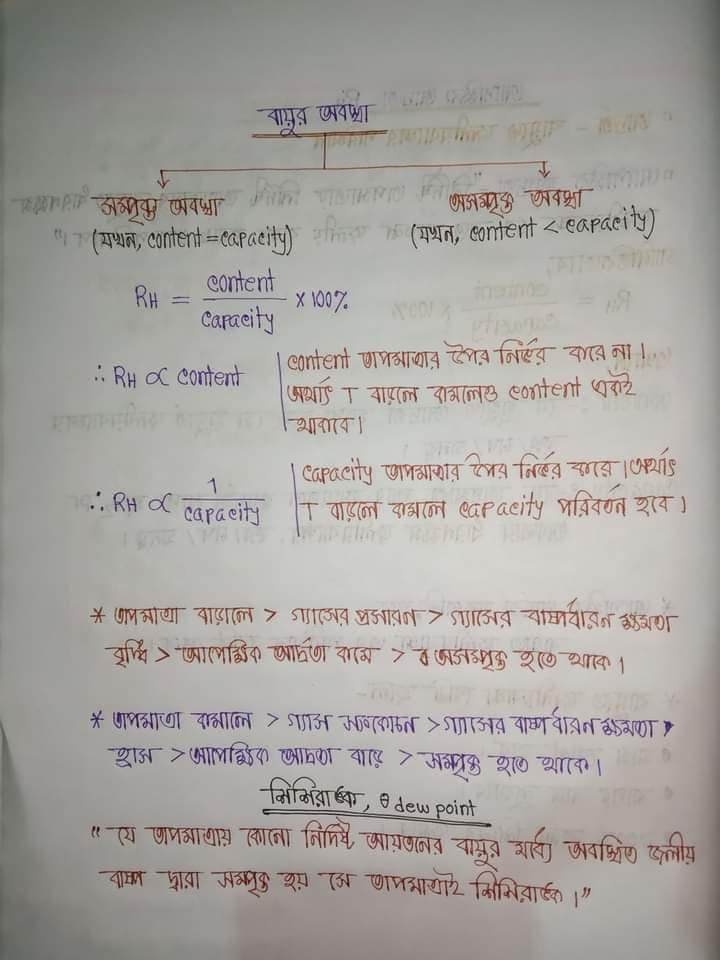 বায়ুর অবস্থা
সম্পৃক্ত অবস্থা
(যখন, content = capacity)
অসম্পৃক্ত অবস্থা
(যখন, content < capacity)
RH = content / capacity × 100%
∴ RH ∝ content
content তাপমাত্রার উপর নির্ভর করে না।
অর্থাৎ T বাড়লে কমলেও content একই
থাকবে।
∴ RH ∝ 1 / capacity
capacity তাপমাত্রার উপর নির্ভর করে। অর্থাৎ
T বাড়লে কমলে capacity পরিবর্তন হবে।
* তাপমাত্রা বাড়ালে > গ্যাসের প্রসারণ > গ্যাসের বাষ্পধারন ক্ষমতা
বৃদ্ধি > আপেক্ষিক আর্দ্রতা কমে > অসম্পৃক্ত হতে থাকে।
* তাপমাত্রা কমালে > গ্যাস সংকোচন > গ্যাসের বাষ্পধারন ক্ষমতা
হ্রাস > আপেক্ষিক আর্দ্রতা বাড়ে > সম্পৃক্ত হতে থাকে।
শিশিরাঙ্ক, θ dew point
" যে তাপমাত্রায় কোনো নির্দিষ্ট আয়তনের বায়ুর মধ্যে অবস্থিত জলীয়
বাষ্প দ্বারা সম্পৃক্ত হয় সে তাপমাত্রাই শিশিরাঙ্ক।"